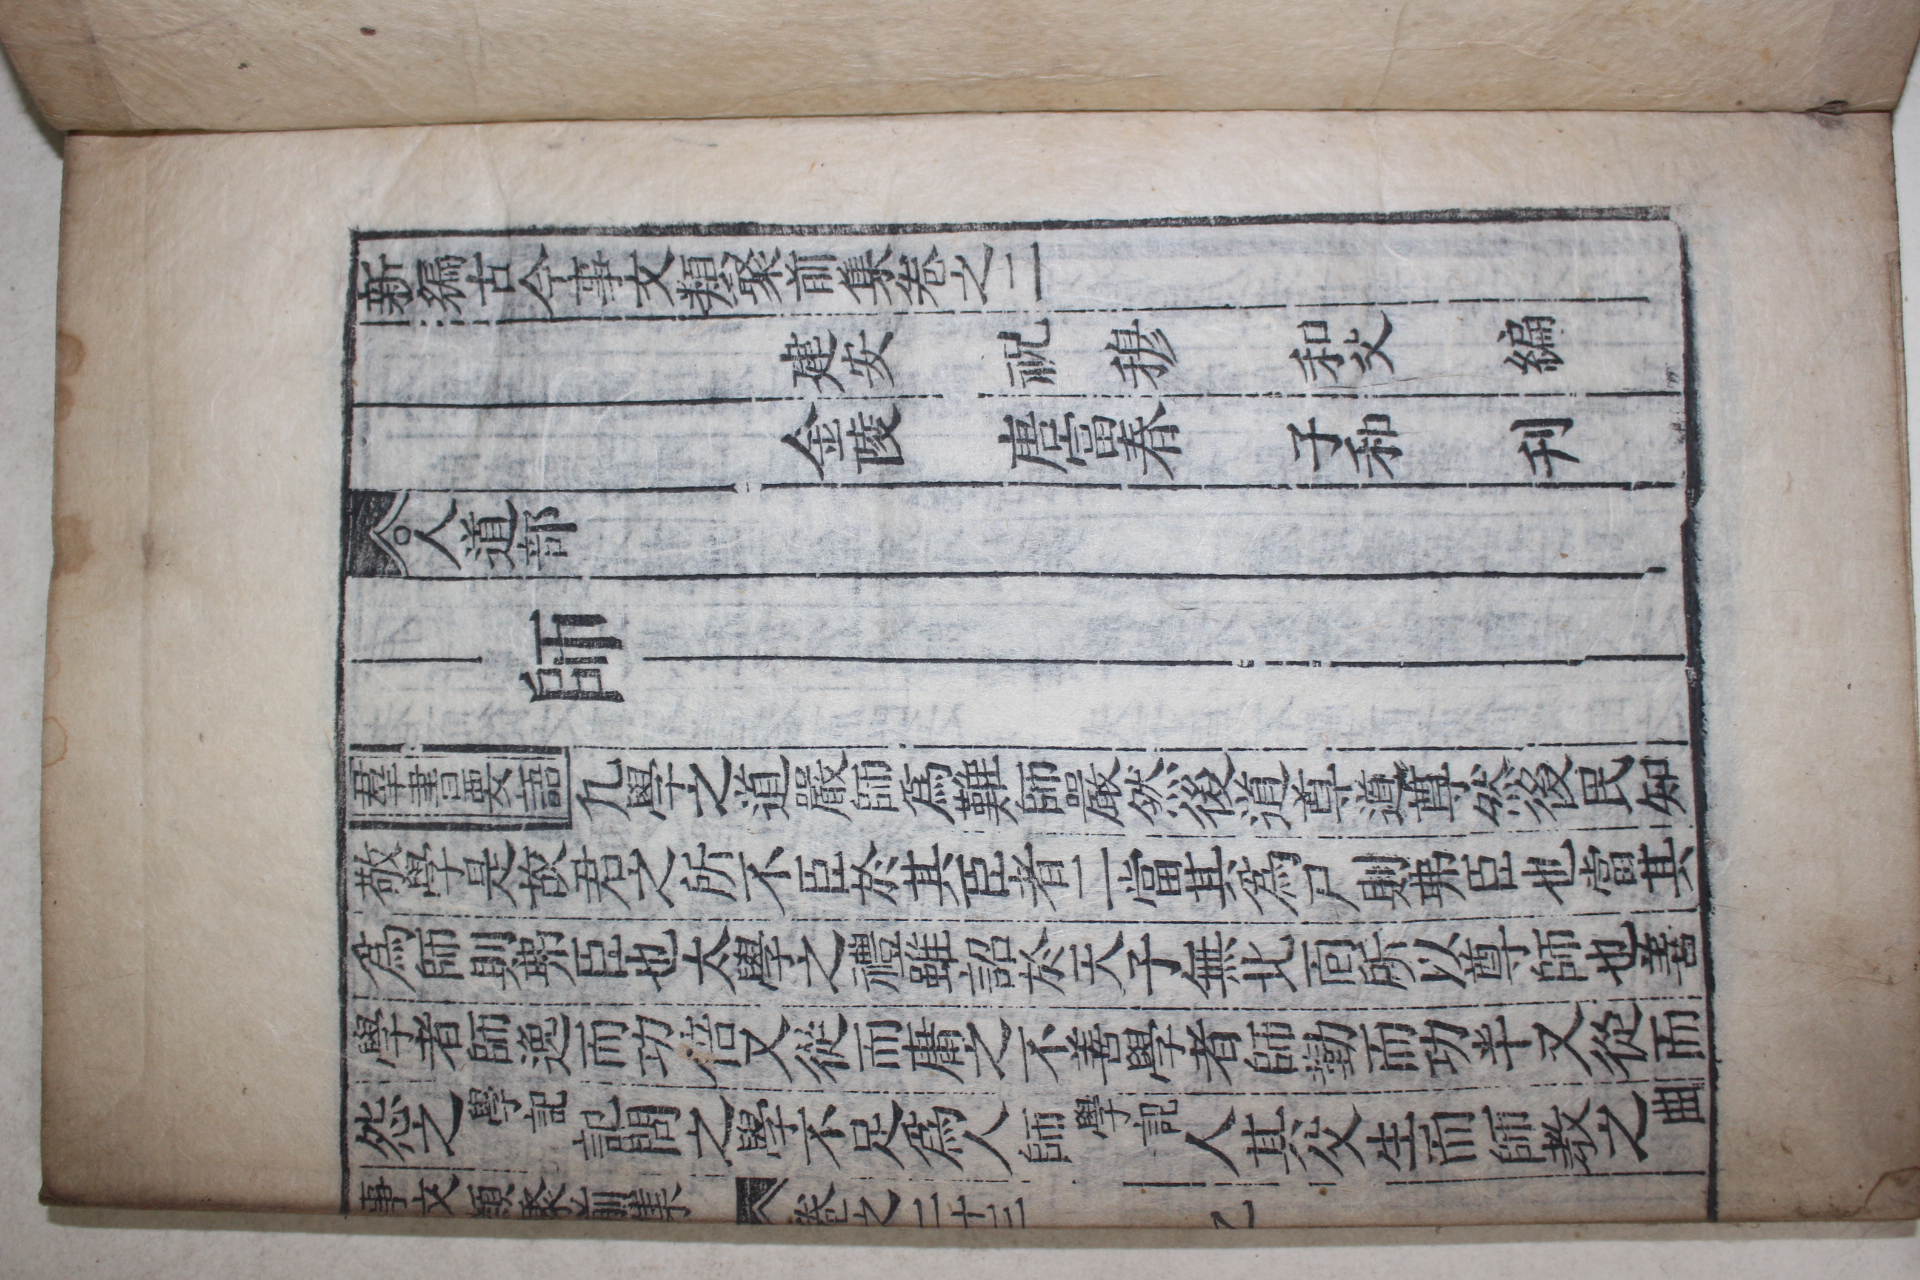 新編古今事文類聚前集卷之二
建安 祝穆 和父 編
金陵 唐富春 子和 刊
○人道部
師
羣書要語 凢學之道嚴師爲難師嚴然後道尊道尊然後民知
敬學是故君之所不臣於其臣者二當其爲尸則弗臣也當其
爲師則弗臣也太學之禮雖詔於天子無北面所以尊師也善
學者師逸而功倍又從而庸之不善學者師勤而功半又從而
怨之 學記 記問之學不足爲人師 學記 人其父生而師教之 曲
事文類聚前集 卷之二十三 乙